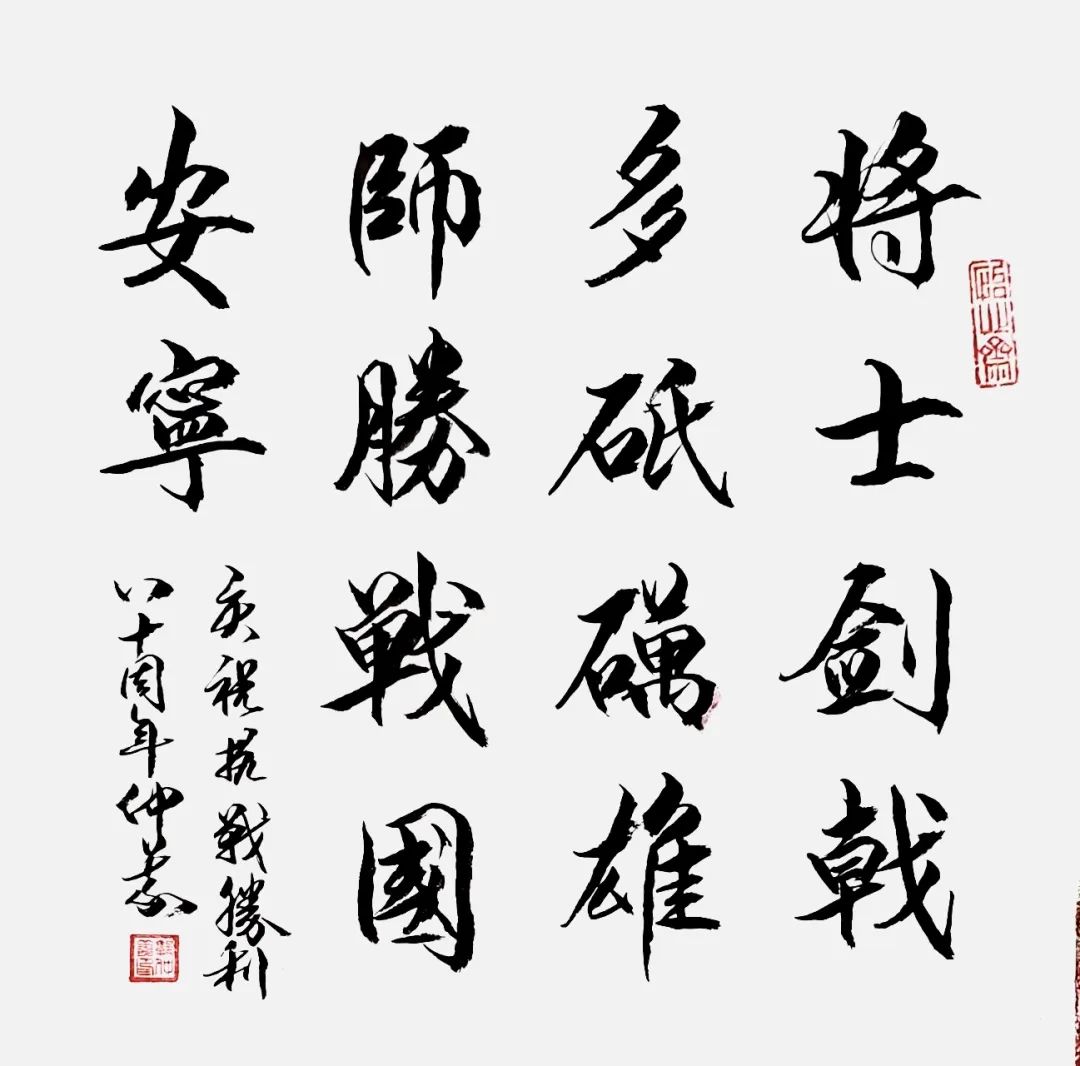 将士剑戟
多砥礪雄
師勝戰國
安寧
慶祝抗戰勝利
八十周年仲義